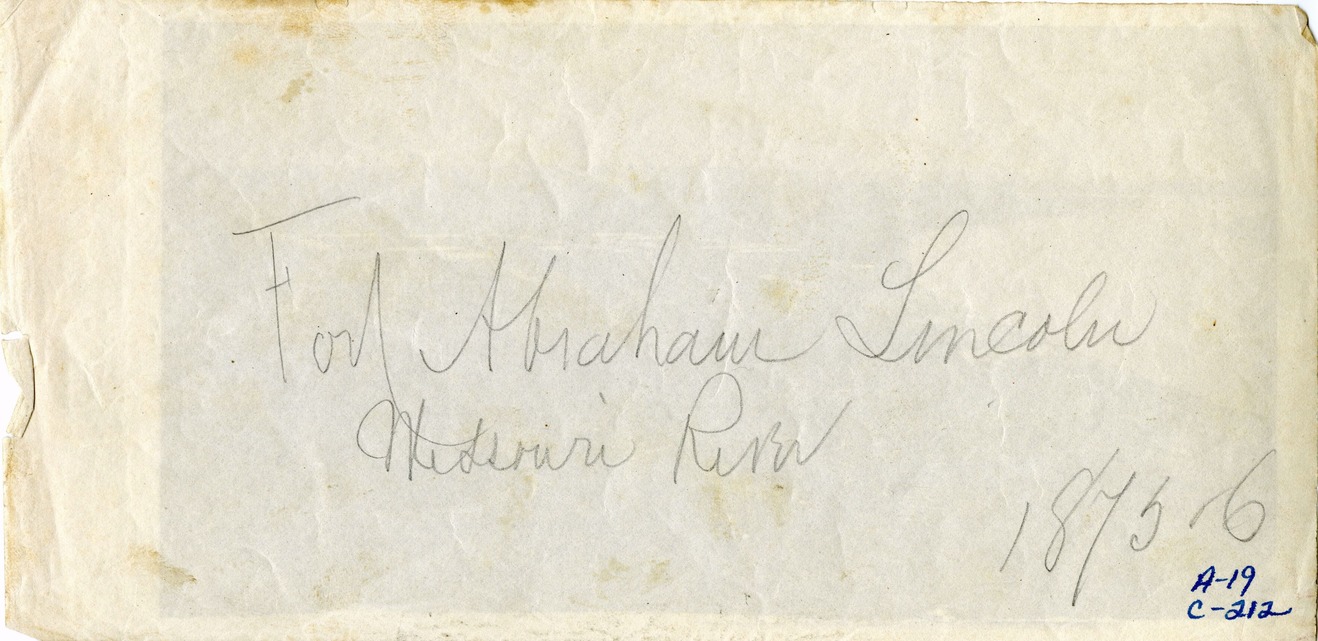 Fort Abraham Lincoln
Missouri River
1875-6
A-19
C-212